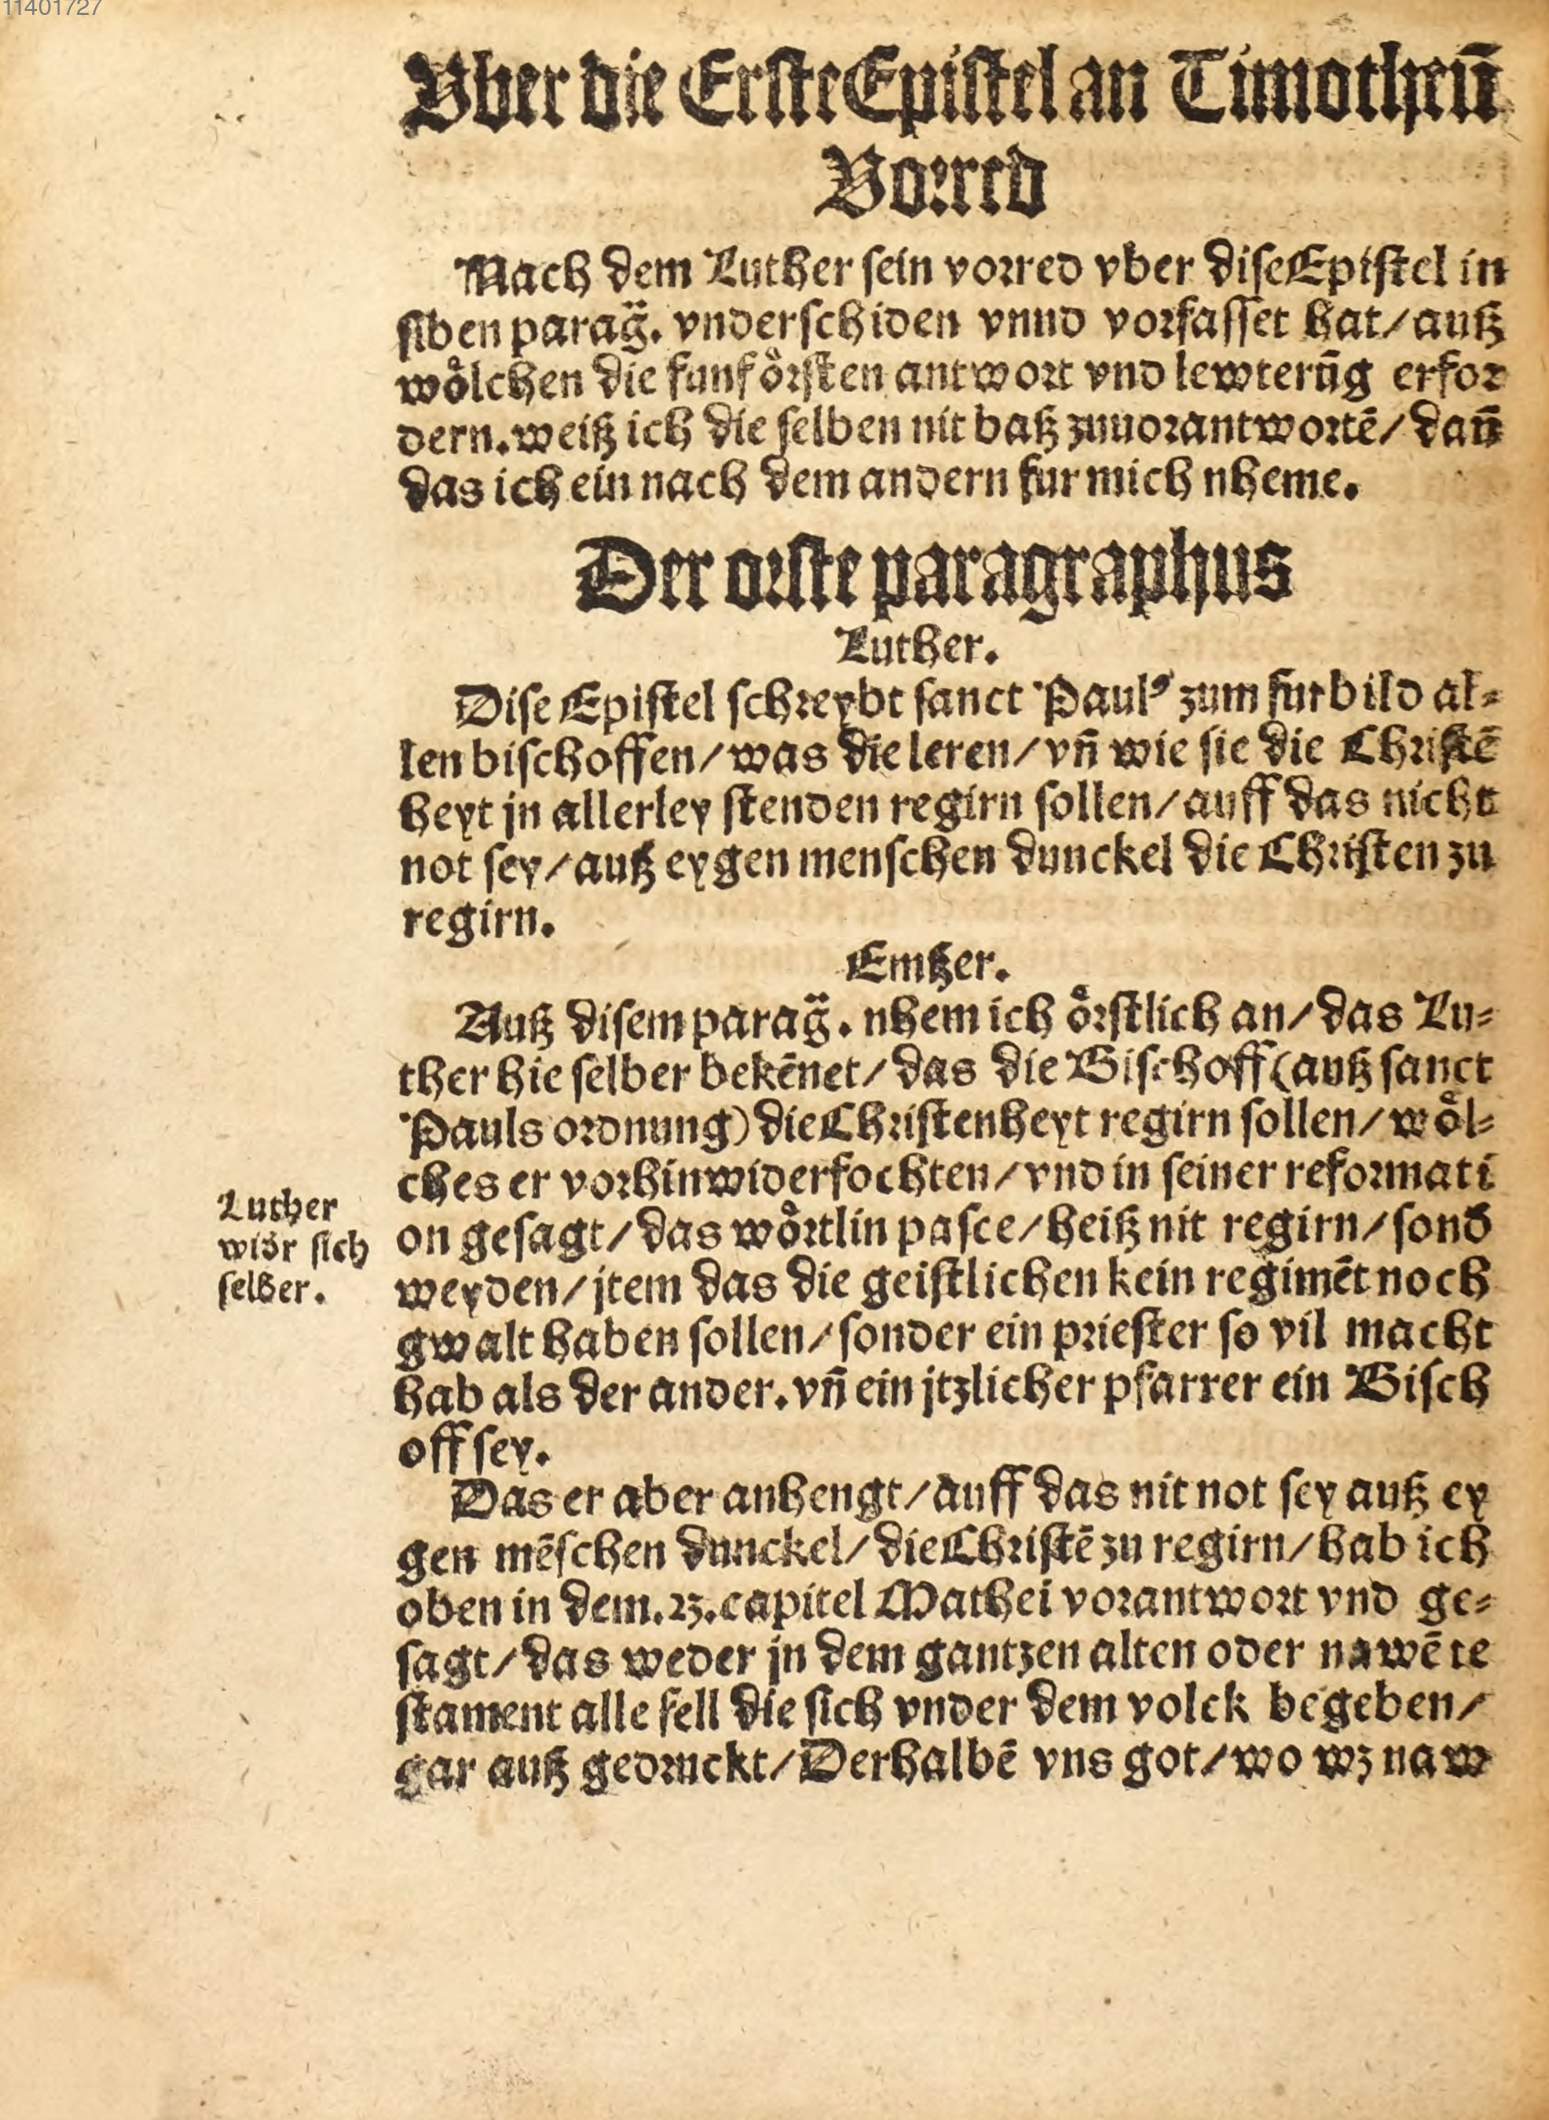 11401727
Vber die Erste Epistel an Timotheū
Vorred
Nach dem Luther sein vorred vber dise Epistel in
siben parag̈. vnderschiden vnnd vorfasset hat/ auß
woͤlchen die funf oͤrsten antwort vnd lewterūg erfor
dern. weiß ich die selben nit baß zuuorantwortē/ dañ
das ich ein nach dem andern fur mich nheme.
Der orste paragraphus
Luther.
Dise Epistel schreybt sanct Paulꝰ zum furbild al⸗
len bischoffen/ was die leren/ vñ wie sie die Christē
heyt jn allerley stenden regirn sollen/ auff das nicht
not sey/ auß eygen menschen dunckel die Christen zu
regirn.
Emßer.
Auß disem parag̈. nhem ich oͤrstlich an/ das Lu⸗
ther hie selber bekēnet/ das die Bischoff (auß sanct
Pauls ordnung) die Christenheyt regirn sollen/ woͤl⸗
ches er vorhin widerfochten/ vnd in seiner reformati
on gesagt/ das woͤrtlin pasce/ heiß nit regirn/ sond̄
Luther
widr sich
selber.
weyden/ jtem das die geistlichen kein regimēt noch
gwalt haben sollen/ sonder ein priester so vil macht
hab als der ander. vñ ein jtzlicher pfarrer ein Bisch
off sey.
Das er aber anhengt/ auff das nit not sey auß ey
gen mēschen dunckel/ die Christē zu regirn/ hab ich
oben in dem. 23. capitel Mathei vorantwort vnd ge⸗
sagt/ das weder jn dem gantzen alten oder nawē te
stament alle fell die sich vnder dem volck begeben/
gar auß gedruckt/ Derhalbē vns got/ wo wz naw